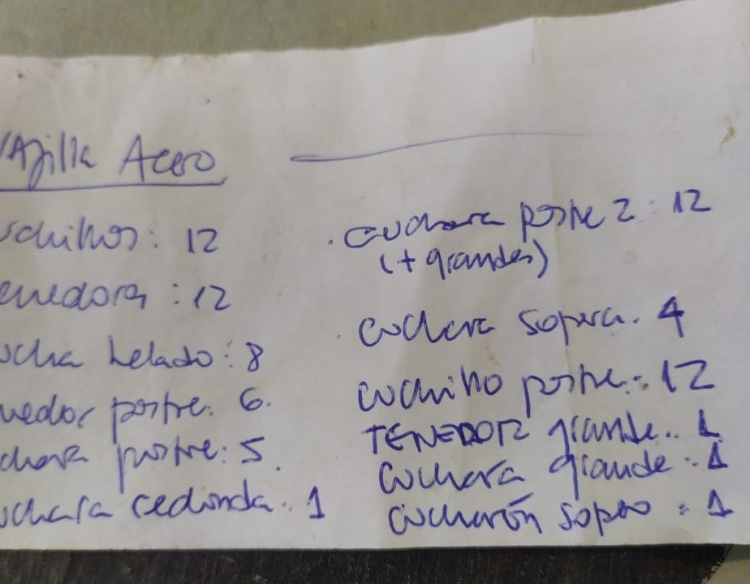 Vajilla Acero
uchillos: 12
enedora: 12
ucha helado: 8
nedor postre: 6.
chara postre: 5.
uchara redonda: 1
. cuchara postre 2: 12
(+ grandes)
. cuchera sopera. 4
cuchillo postre: 12
TENEDOR grande.. 1
cuchara grande: 1
cucharón sopero: 1